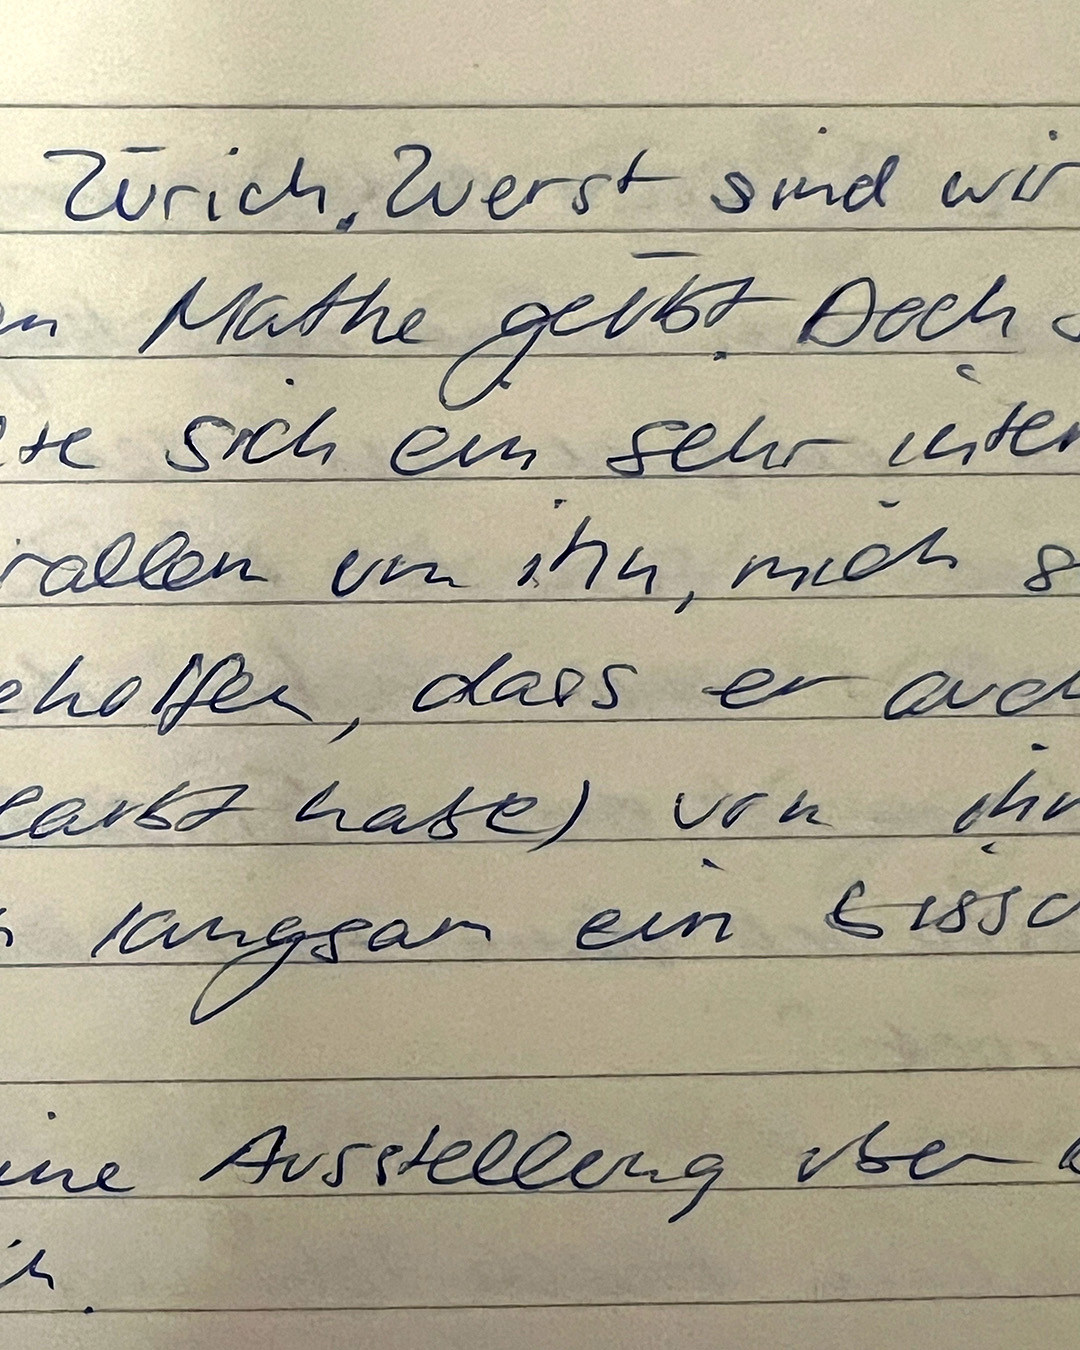 Zürich. Zuerst sind wir
Mathe geübt. Doch
sich ein sehr inter
von ihm, mich
eholfen, dass er auch
habe) von ihm
langsam ein bissc
ine Ausstellung über